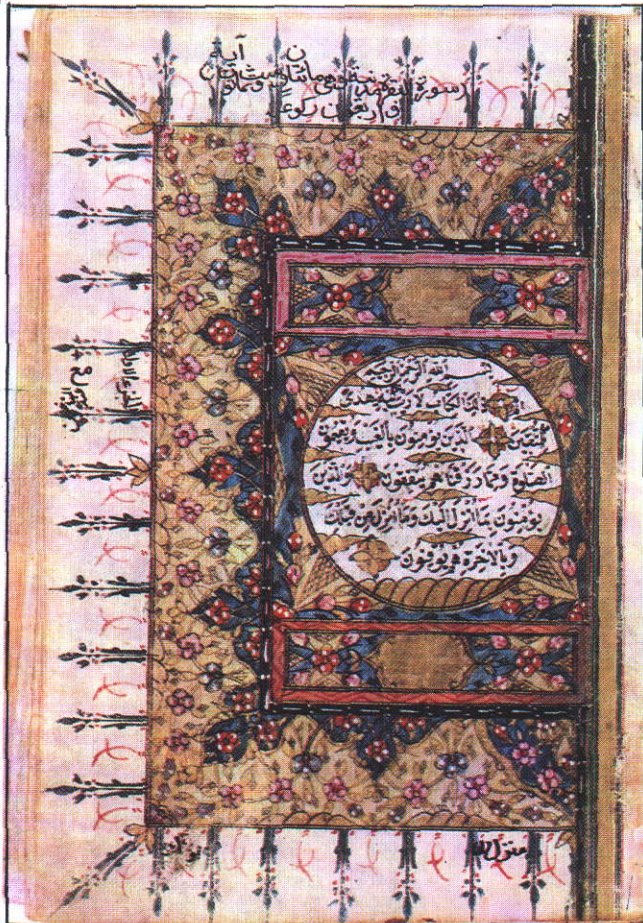 آية
سورة البقرة مدنية وهي مائتان وست وثمانون
وأربعين ركوعا
بسم الله الرحمن الرحيم
الم ذلك الكتاب لا ريب فيه هدى
للمتقين الذين يؤمنون بالغيب ويقيمون
الصلوة ومما رزقناهم ينفقون والذين
يؤمنون بما انزل اليك وما انزل من قبلك
وبالاخرة هم يوقنون